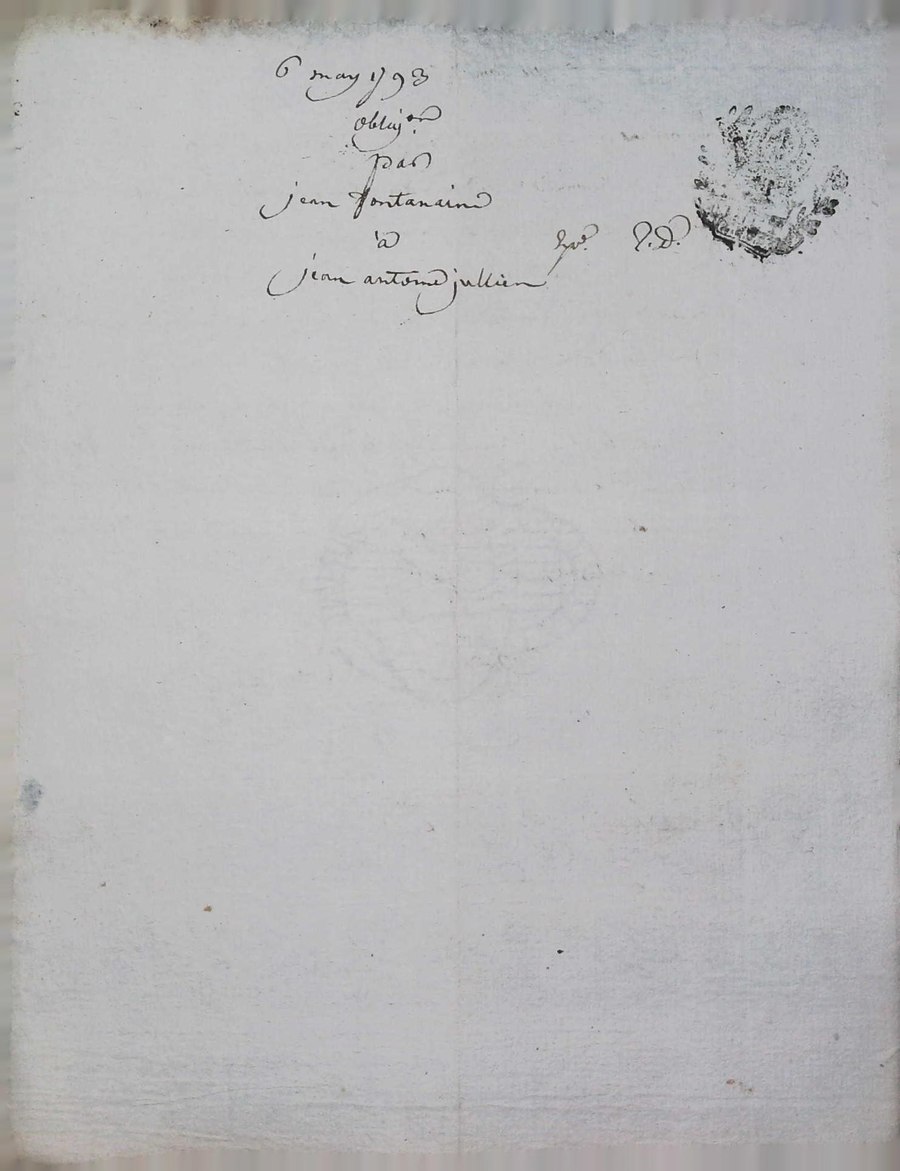 6 may 1793
obligon
par
jean fontanaine
à
jean antoine jullien